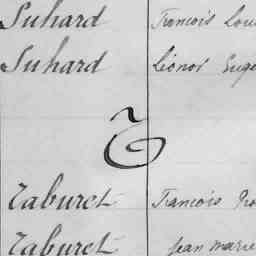 Suhard François Loui
Suhard Léonor Euge
T
Taburet François
Taburet Jean Marie